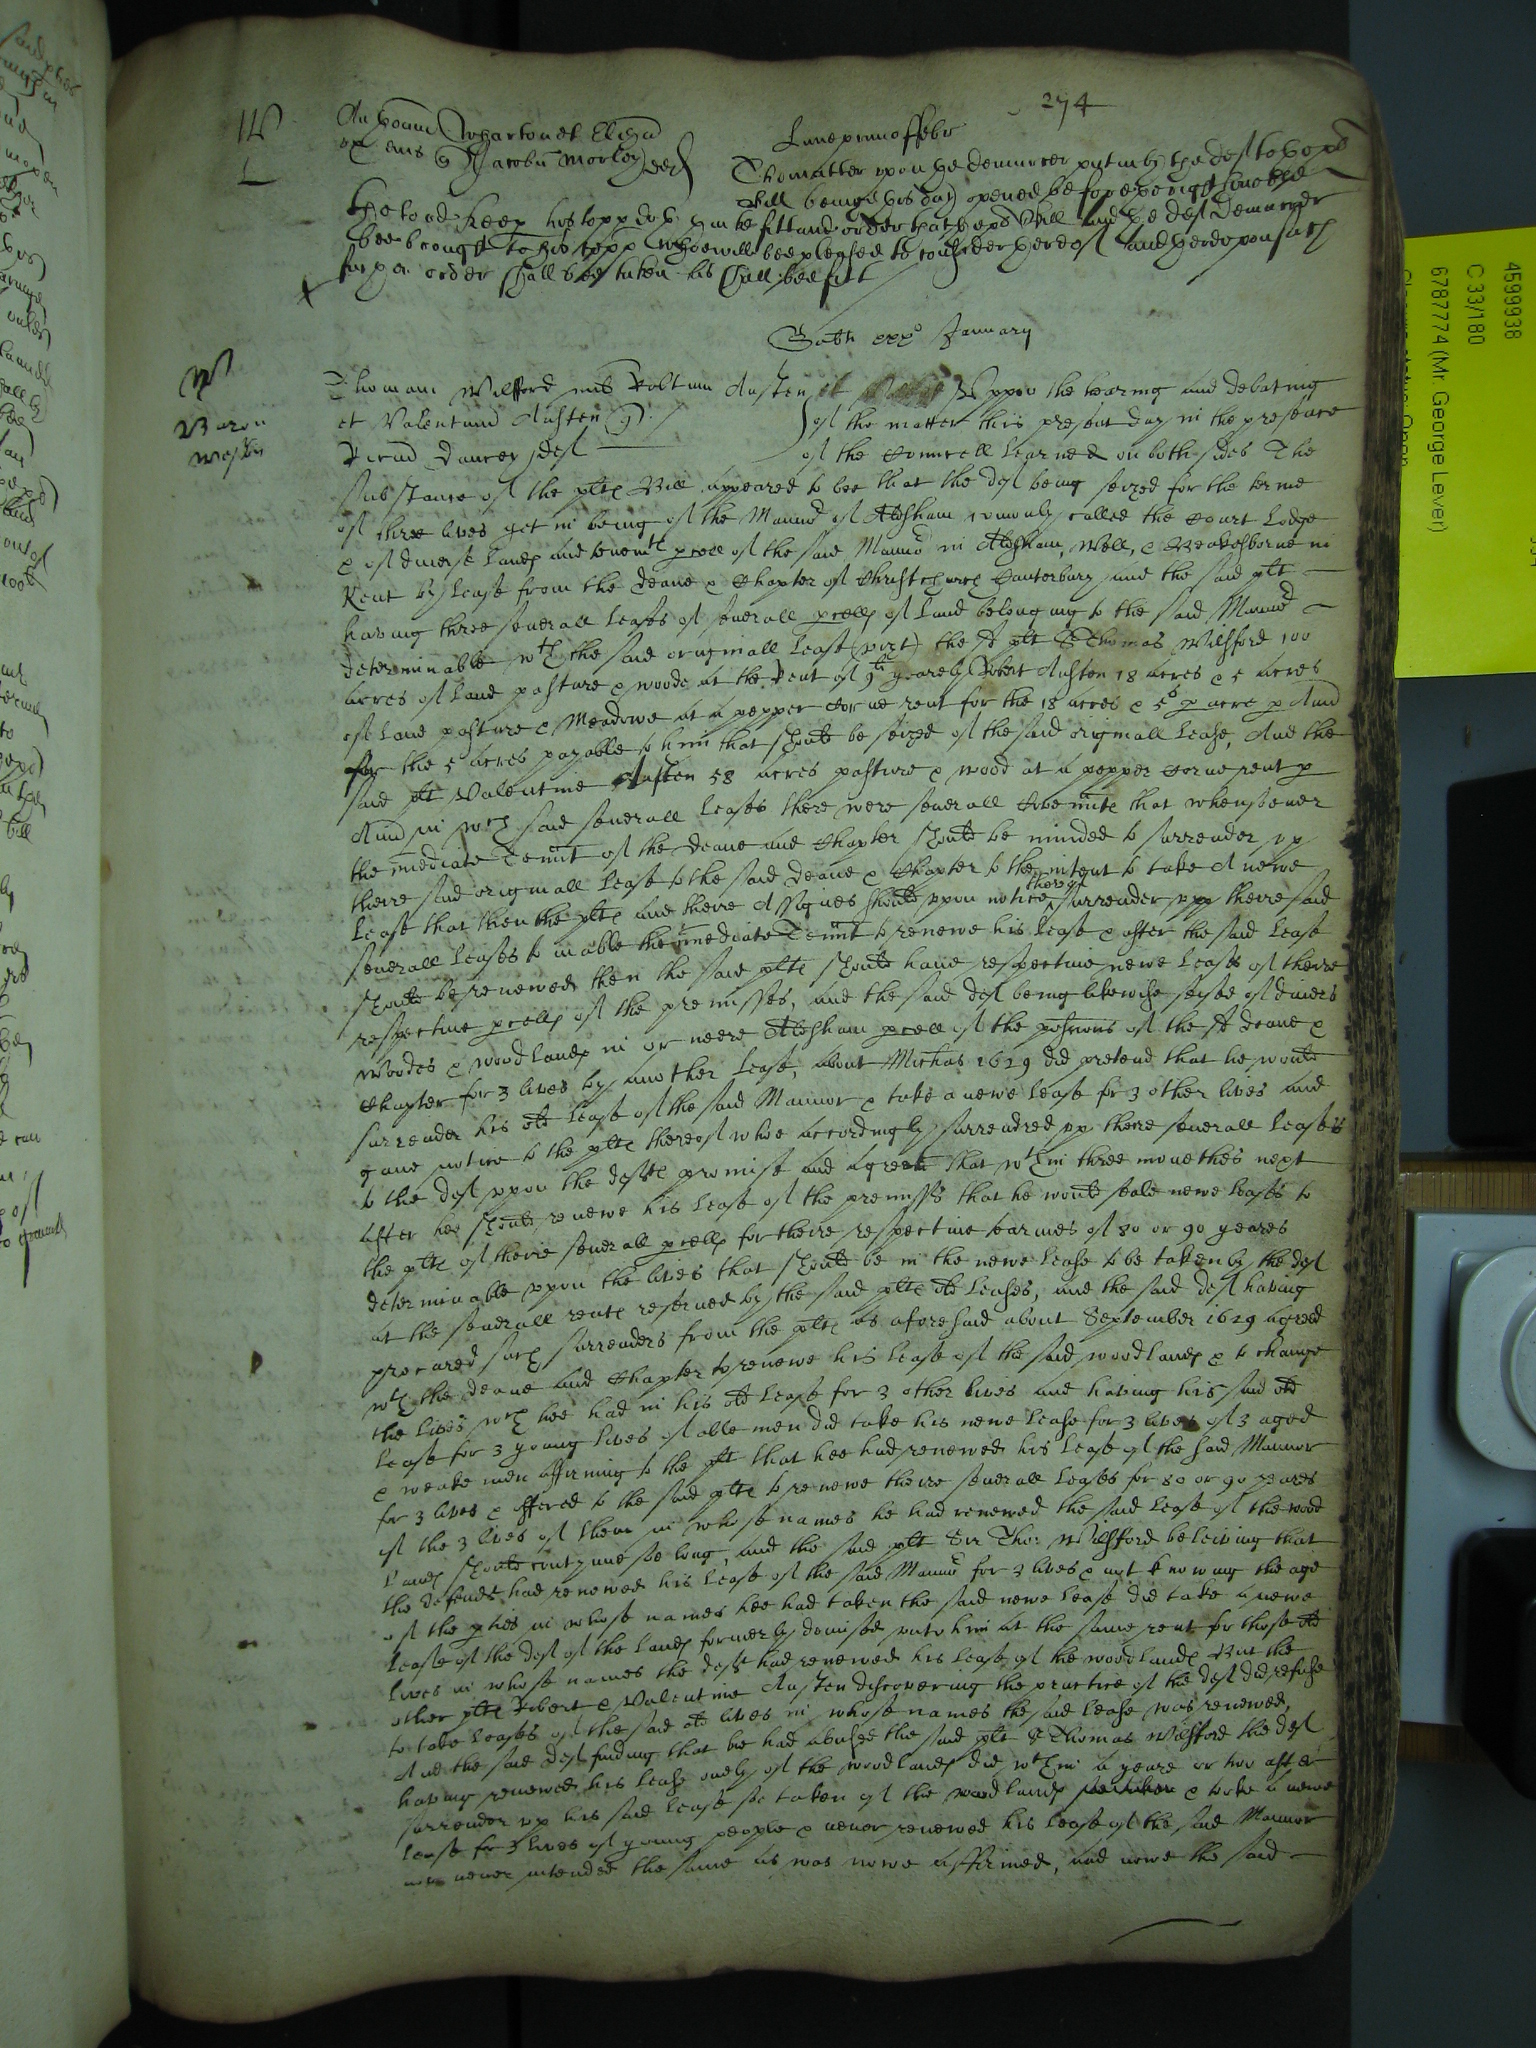 274
Lune primo ffebr
Anthonium Wharton et Eliza
ux eius q Jacobu Morley def
The matter upon the demurrer put in by the def to the pl
Bill beinge this day opened before the right honoble
the lord Keep his lopp doth thinke fitt and order that the pl Bill and the def demurrer
bee brought to his lopp whoe will bee pleased to consider thereof and thereupon such
further order shall bee taken as shall bee fitt
Sabti xxx° January
Baron
Weston
Thomam Wilsford mil Robtum Austen et Upon the hearing and debating
et Valentinu Austen q
of the matter this present day in the presence
Ricum Dancey def
of the Councell learned on both sides The
substance of the plts Bill appeared to bee that the def being seized for the terme
of three lives yet in being of the Mannor of Adsham comonly called the Court Lodge
& of diverse lands and tenemts pcell of the said Mannor in Adsham, Well, & Beakesborne in
Kent by lease from the Deane & Chapter of Christchurch Canterbury and the said plts
having three severall leases of severall pcells of land belonging to the said Mannor
determinable wth the said originall lease (vizt) the sd plt Sr Thomas Wilsford 100
acres of land pasture & woode at the Rent of 9li yearely Robert Austen 18 acres & 5 acres
of land pasture & Meadowe at a pepper Corne rent for the 18 acres & 5s p acre p Annu
for the 5 acres payable to him that should be seized of the said originall lease, And the
said plt Valentine Austen 58 acres pasture & wood at a pepper Corne rent p
Annu in wch said severall leases there were severall Covennts that whensoever
the imediate Tennt of the Deane and Chapter should be minded to surrender upp
theire said originall lease to the said Deane & Chapter to the intent to take A newe
lease that then the plts and theire Assignes should uppon notice thereof surrender upp theire said
severall leases to inable the imediate Tennt to renewe his lease & after the said lease
should be renewed then the said plts should have respective newe leases of theire
respective pcells of the premisses, and the said def being likewise seised of divers
Woodes & woodlands in or neere Adsham pcell of the possions of the sd Deane &
Chapter for 3 lives by another lease, about Michas 1629 did pretend that he would
surrender his old lease of the said Mannor & take a newe lease for 3 other lives and
gave notice to the plts thereof whoe accordingly surrendred upp there severall leases
to the def uppon the defts promise and agreemt that wthin three monethes next
after hee should renewe his lease of the premisses that he would seale newe leases to
the plts of theire severall pcells for theire respective tearmes of 80 or 90 yeares
determinable uppon the lives that should be in the newe lease to be taken by the def
at the severall rents reserved by the said plts old leases, and the said def having
procured such surrenders from the plts as aforesaid about September 1629 agreed
wth the Deane and Chapter to renewe his lease of the said woodlands & to change
the lives wch hee had in his old lease for 3 other lives and having his said old
lease for 3 young lives of able men did take his newe lease for 3 lives of 3 aged
& weake men affirming to the plt that hee had renewed his lease of the said Mannor
for 3 lives & offered to the said plts to renewe theire severall leases for 80 or 90 yeares
if the 3 lives of them in whose names he had renewed the said lease of the wood
lands should contynue soe long, and the said plt Sir Tho: Wilsford beleiving that
the defendt had renewed his lease of the said Mannor for 3 lives & not knowing the age
of the pties in whose names hee had taken the said newe lease did take a newe
lease of the def of the lands formerly demised unto him at the same rent for those old
lives in whose names the deft had renewed his lease of the woodlands But the
other plts Robert & Valentine Austen discovering the practice of the def did refuse
to take leases of the said old lives in whose names the said lease was renewed,
And the said def finding that hee had abused the said plt Sr Thomas Wilsford the def
having renewed his lease onely of the woodlands did wthin a yeare or two after
surrender up his said lease soe taken of the woodlands & tooke a newe
lease for 3 lives of young people & never renewed his lease of the said Mannor
nor never intended the same as was nowe affirmed, and nowe the said
4599938
C 33/180
6787774 (Mr. George Lever)